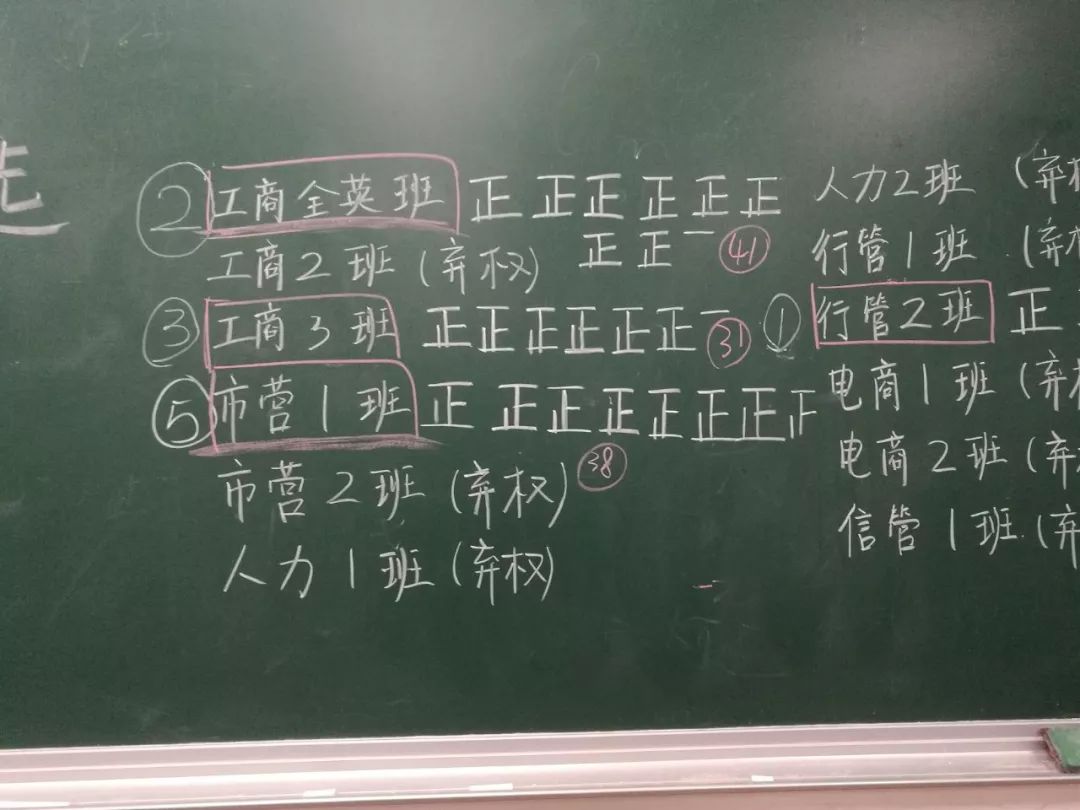 ② 工商全英班 正 正 正 正 正 正
正 正 一 ㊶
工商2班 (弃权)
③ 工商3班 正 正 正 正 正 正 一 ㉛
⑤ 市营1班 正 正 正 正 正 正 正
㊳
市营2班 (弃权)
人力1班 (弃权)
人力2班 (弃权
行管1班 (弃
① 行管2班 正
电商1班 (弃
电商2班 (弃
信管1班 (弃